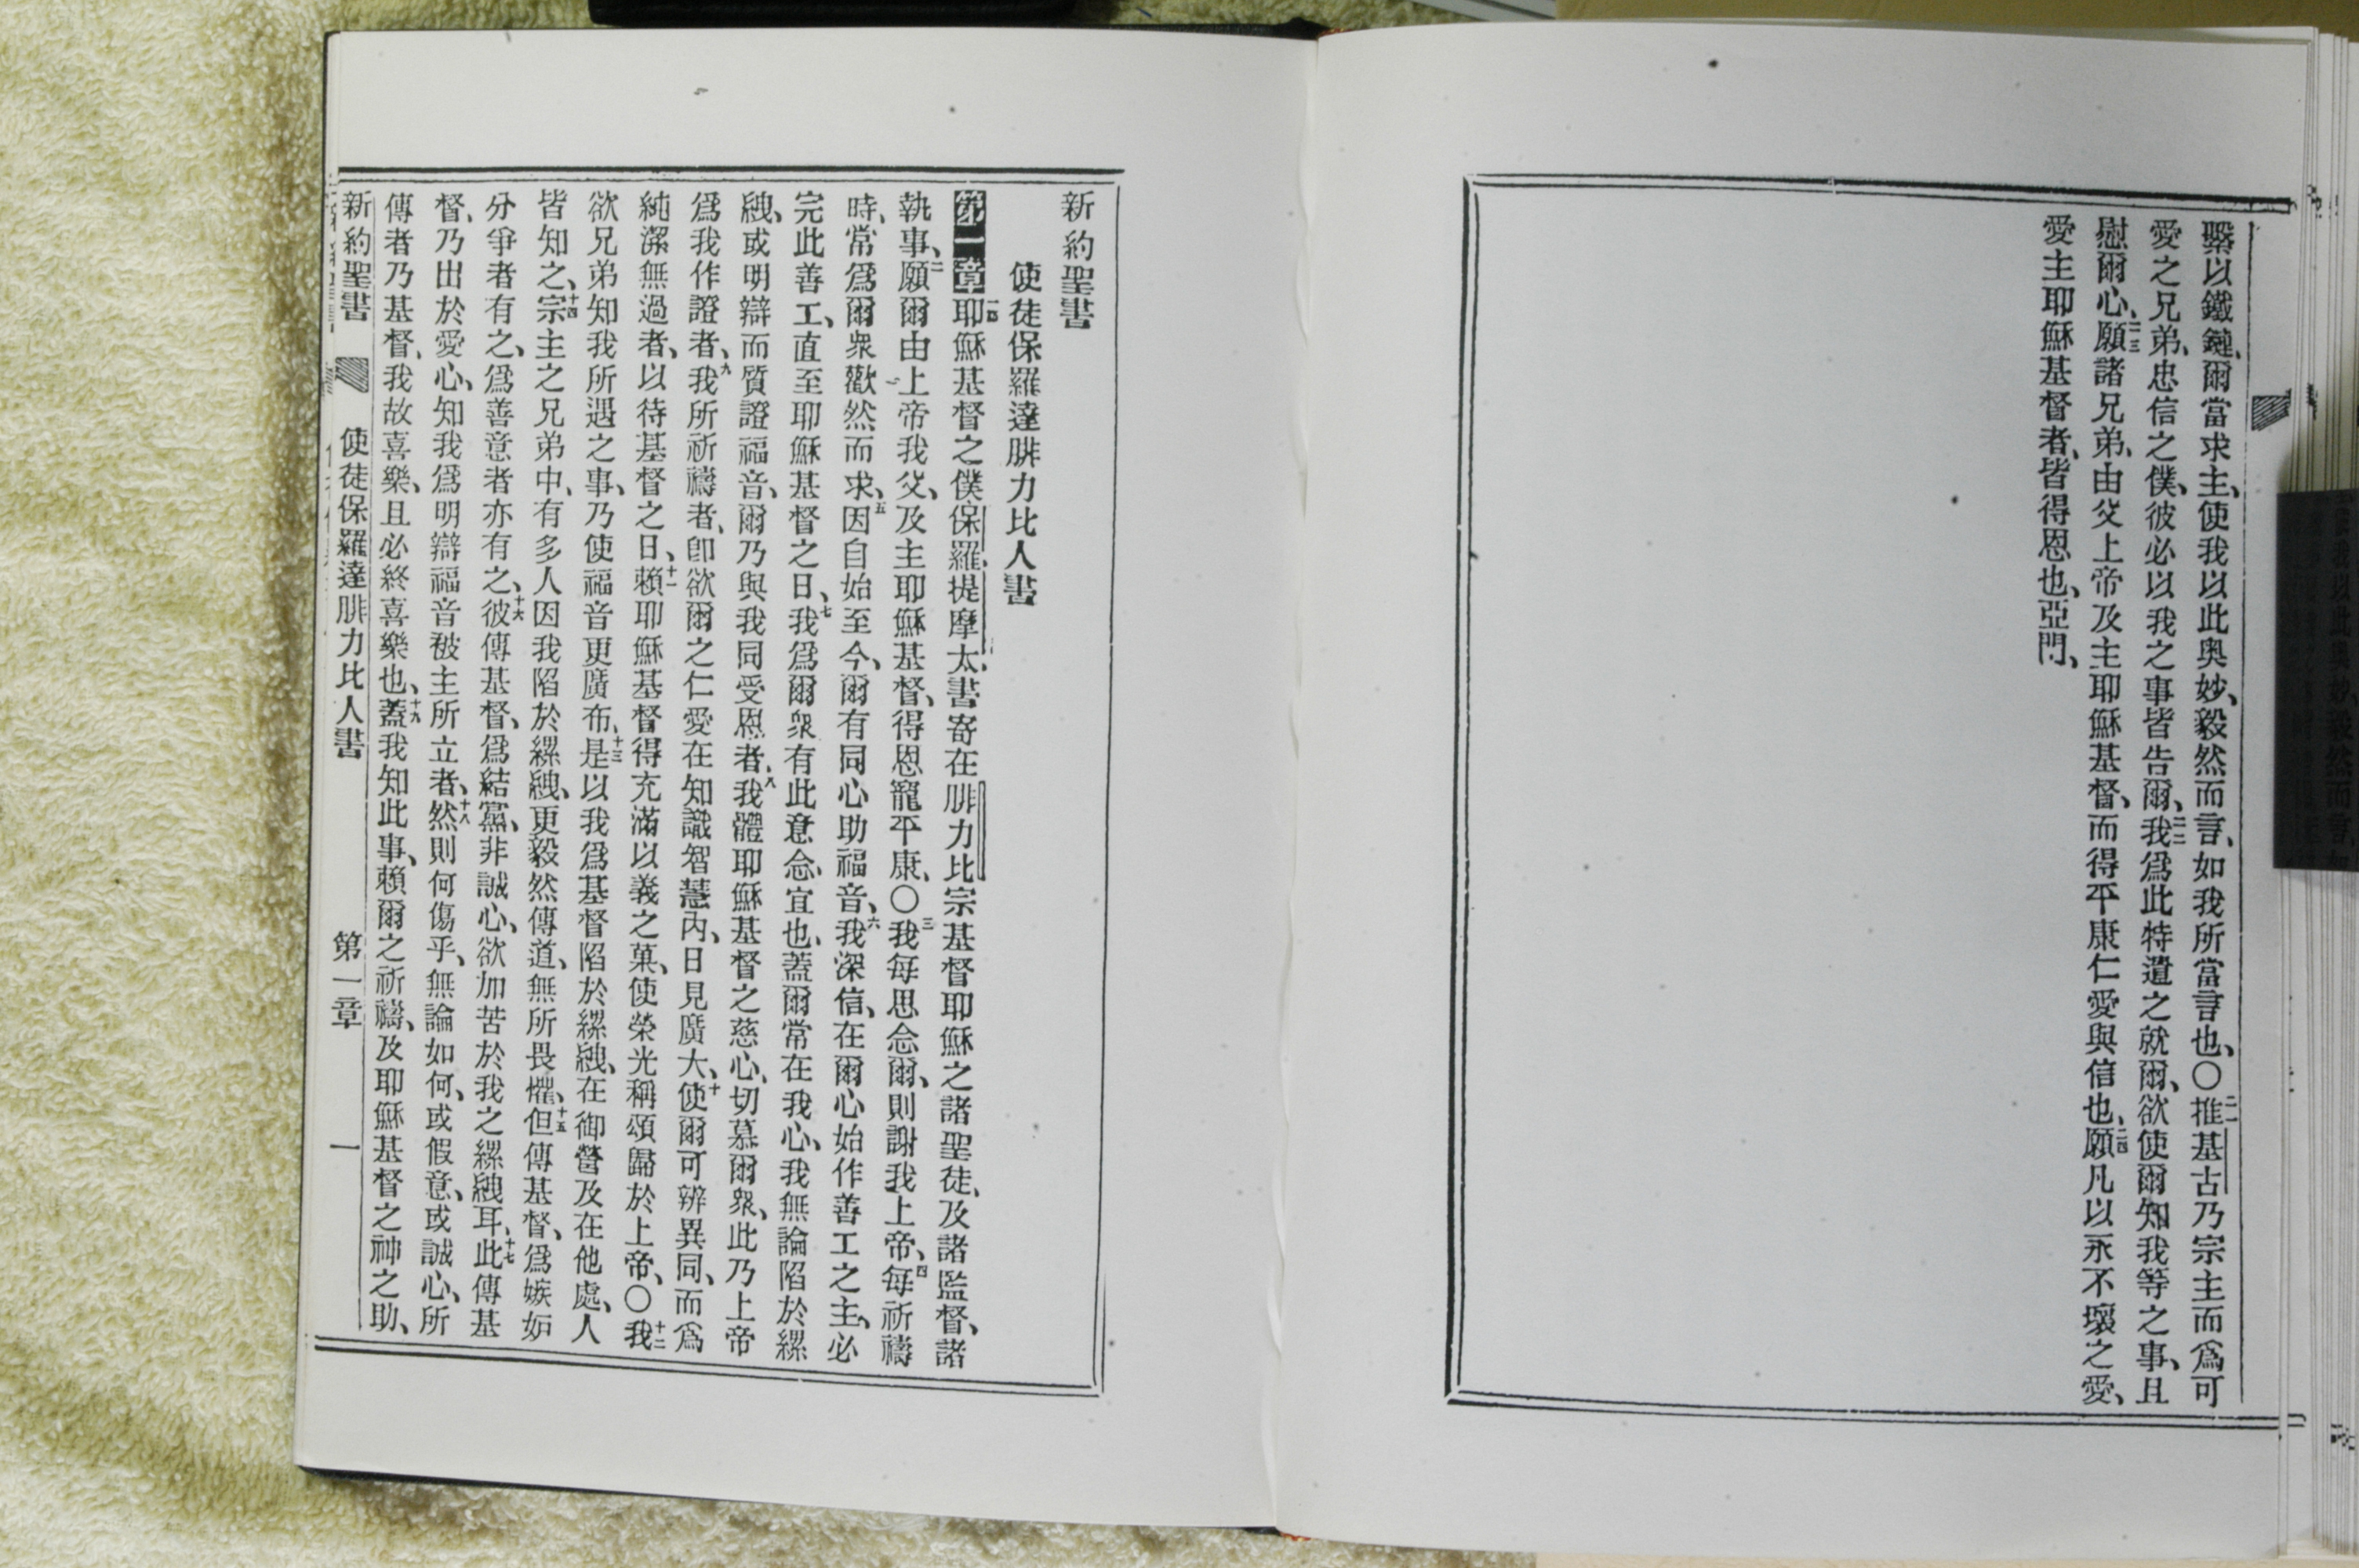 繫以鐵鏈、爾當求主、使我以此奥妙、毅然而言、如我所當言也、〇二一推基古乃宗主而爲可
愛之兄弟、忠信之僕、彼必以我之事皆告爾、二二我爲此特遣之就爾、欲使爾知我等之事、且
慰爾心、二三願諸兄弟、由父上帝及主耶穌基督、而得平康仁愛與信也、二四願凡以永不壞之愛、
愛主耶穌基督者、皆得恩也、亞門、
新約聖書
使徒保羅達腓力比人書
第一章一耶穌基督之僕保羅、提摩太、書寄在腓力比宗基督耶穌之諸聖徒、及諸監督、諸
執事、二願爾由上帝我父、及主耶穌基督、得恩寵平康、〇三我每思念爾、則謝我上帝、四每祈禱
時、常爲爾衆歡然而求、五因自始至今、爾有同心助福音、六我深信、在爾心始作善工之主、必
完此善工、直至耶穌基督之日、七我爲爾衆有此意念、宜也、蓋爾常在我心、我無論陷於縲
絏、或明辯而質證福音、爾乃與我同受恩者、八我體耶穌基督之慈心、切慕爾衆、此乃上帝
爲我作證者、九我所祈禱者、卽欲爾之仁愛在知識智慧內、日見廣大、十使爾可辨異同、而爲
純潔無過者、以待基督之日、十一賴耶穌基督得充滿以義之菓、使榮光稱頌歸於上帝、〇十二我
欲兄弟知我所遇之事、乃使福音更廣布、十三是以我爲基督陷於縲絏、在御營及在他處、人
皆知之、十四宗主之兄弟中、有多人因我陷於縲絏、更毅然傳道、無所畏懼、十五但傳基督、爲嫉妒
分爭者有之、爲善意者亦有之、十六彼傳基督、爲結黨、非誠心、欲加苦於我之縲絏耳、十七此傳基
督、乃出於愛心、知我爲明辯福音被主所立者、十八然則何傷乎、無論如何、或假意、或誠心、所
傳者乃基督、我故喜樂、且必終喜樂也、十九蓋我知此事、賴爾之祈禱、及耶穌基督之神之助、
新約聖書 使徒保羅達腓力比人書 第一章 一